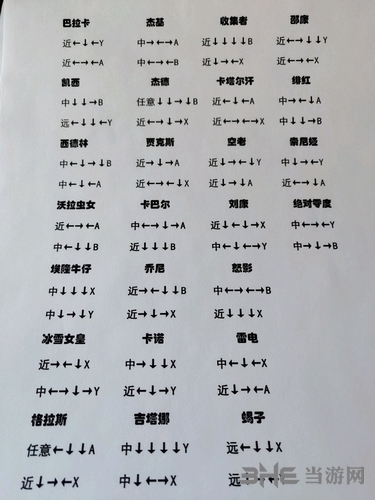 巴拉卡 杰基 收集者 邵康
近←↓←Y 中→←→A 近↓↓↓B 近←→↓↓Y
近←→←A 中→←→B 近↓←→X 近←→←X
凯西 杰德 卡塔尔汗 绯红
中↓↓→B 任意↓↓↓B 近←↓←A 中→←↓A
远←↓↓←Y 近↓→↓X 近←→←X 中→↓←B
西德林 贾克斯 空老 索尼娅
中←↓→↓B 近→↓→A 近↓←↓Y 中↓→←Y
中←↓←A 近←→←↓X 近↓←→Y 近↓↓→A
沃拉虫女 卡巴尔 刘康 绝对零度
近←←→A 中←→↓→A 近↓←↓→X 中←→←Y
中←↓↓B 近↓↓↓B 中↓←→←Y 中→↓→B
埃隆牛仔 乔尼 怒影
中↓↓↓X 近→←↓↓B 中←→←→B
中→↓↓X 近↓→↓Y 中→←→X
冰雪女皇 卡诺 雷电
近→←↓X 中→↓↓X 中←↓←X
中←→↓→Y 近↓←↓Y 近↓→←A
格拉斯 吉塔娜 蝎子
任意←↓↓A 中↓↓↓↓Y 远←↓↓X
近↓→←X 中↓←→X
当游网